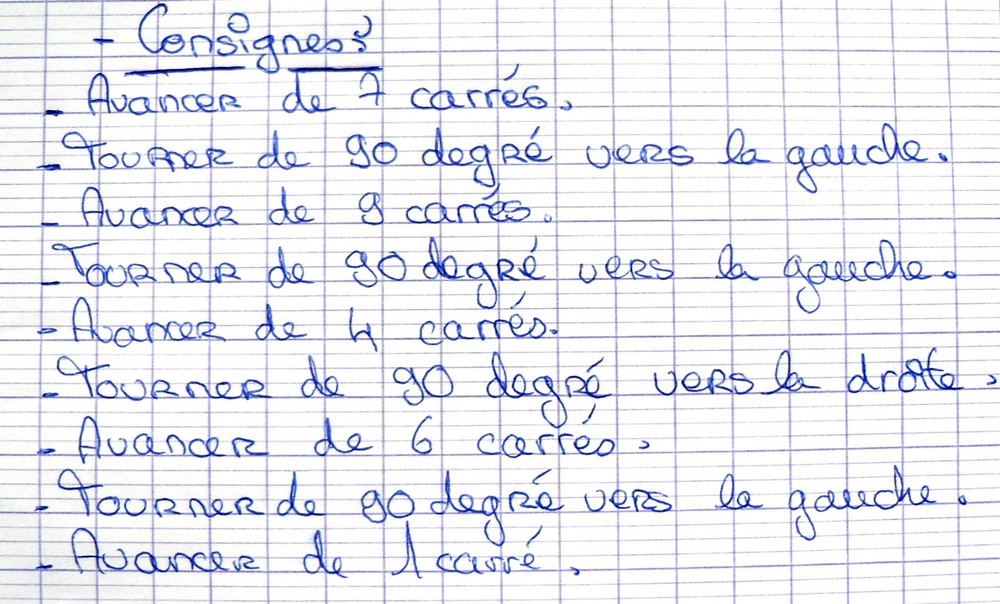 - Consignes :
- Avancer de 7 carrés.
- Tourner de 90 degré vers la gauche.
- Avancer de 9 carrés.
- Tourner de 90 degré vers la gauche.
- Avancer de 4 carrés.
- Tourner de 90 degré vers la droite.
- Avancer de 6 carrés.
- Tourner de 90 degré vers la gauche.
- Avancer de 1 carré.